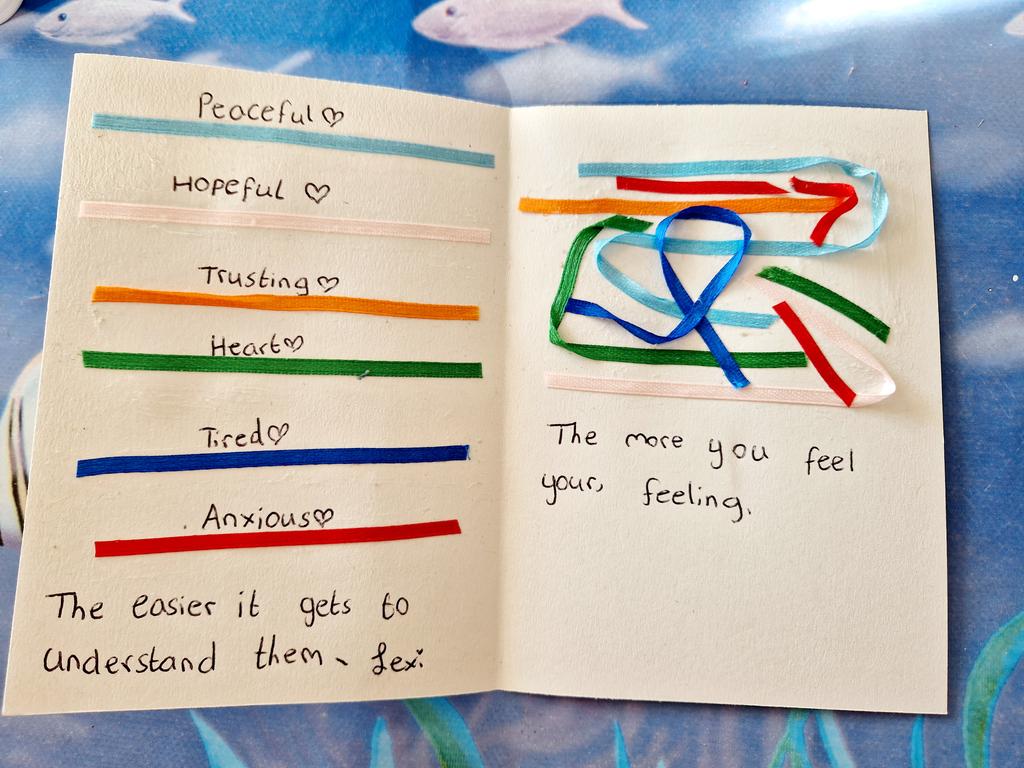 Peaceful♡
Hopeful ♡
Trusting♡
Heart♡
Tired♡
Anxious♡
The easier it gets to
understand them. Lexi.
The more you feel
your, feeling.